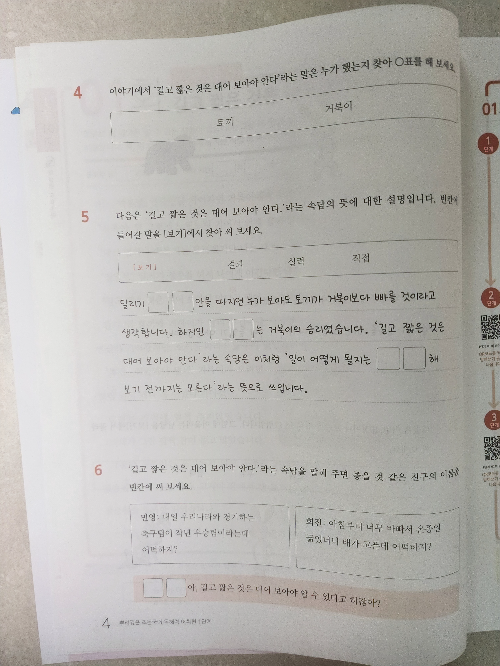 4 이야기에서 '길고 짧은 것은 대어 보아야 안다'라는 말은 누가 했는지 찾아 ○표를 해 보세요.
토끼 거북이
5 다음은 '길고 짧은 것은 대어 보아야 안다.'라는 속담의 뜻에 대한 설명입니다. 빈칸에
들어갈 말을 [보기]에서 찾아 써 보세요.
[보기] 실제 실력 직접
달리기 만을 따지면 누가 보아도 토끼가 거북이보다 빠를 것이라고
생각합니다. 하지만 는 거북이의 승리였습니다. '길고 짧은 것은
대어 보아야 안다'라는 속담은 이처럼 '일이 어떻게 될지는 해
보기 전까지는 모른다'라는 뜻으로 쓰입니다.
6 '길고 짧은 것은 대어 보아야 안다.'라는 속담을 말해 주면 좋을 것 같은 친구의 이름을
빈칸에 써 보세요.
민영: 내일 우리나라와 경기하는
축구팀이 작년 우승팀이라는데
어떡하지?
희진: 아침부터 너무 바빠서 온종일
굶었더니 배가 고픈데 어떡하지?
아, 길고 짧은 것은 대어 보아야 알 수 있다고 하잖아?
4
01
1
단계
2
단계
3
단계